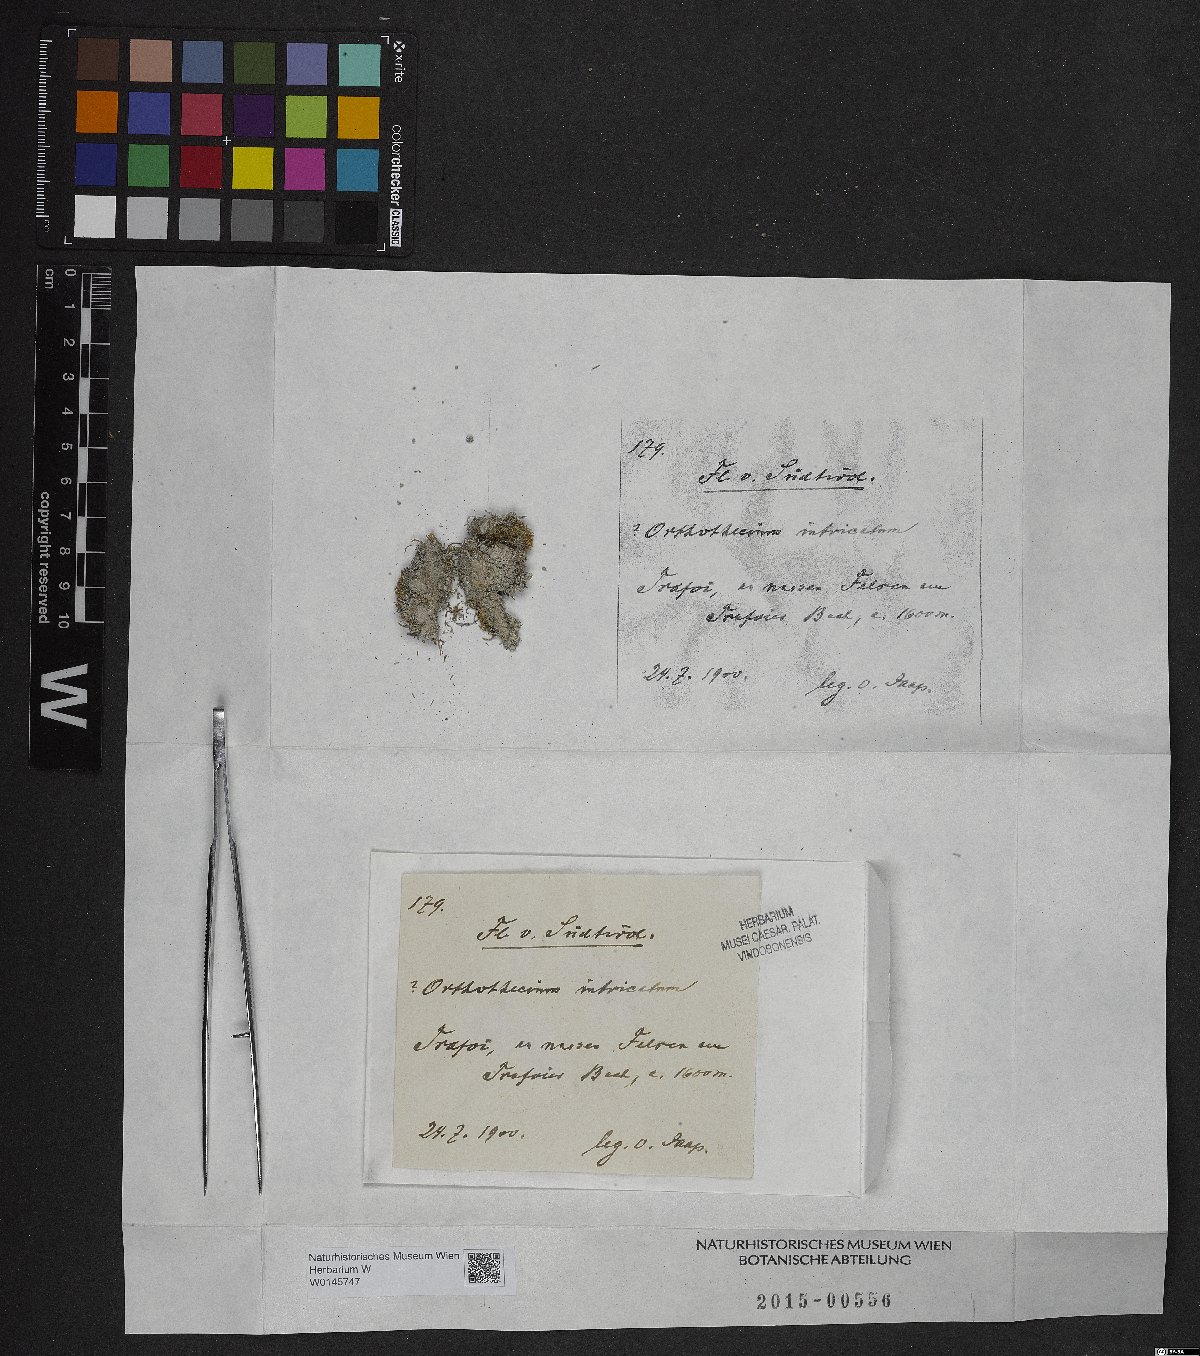 x-rite
colorchecker CLASSIC
cm
0 1 2 3 4 5 6 7 8 9 10
copyright reserved
W
179.
Fl v. Südtirol.
? Orthothecium intricatum
Trafoi, an nassen Felsen am
Trafoier Bach, c. 1600 m.
24. 7. 1900.
leg. O. Jaap.
179.
Fl v. Südtirol.
? Orthothecium intricatum
Trafoi, an nassen Felsen am
Trafoier Bach, c. 1600 m.
24. 7. 1900.
leg. O. Jaap.
HERBARIUM
MUSEI CAESAR. PALAT.
VINDOBONENSIS
Naturhistorisches Museum Wien
Herbarium W
W0145747
NATURHISTORISCHES MUSEUM WIEN
BOTANISCHE ABTEILUNG
2015-00556